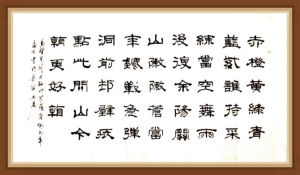 赤橙黃綠青
藍紫誰持采
練當空舞雨
後復斜陽關
山陣陣蒼當
年鏖戰急彈
洞前邨壁裝
點此關山今
朝更好看